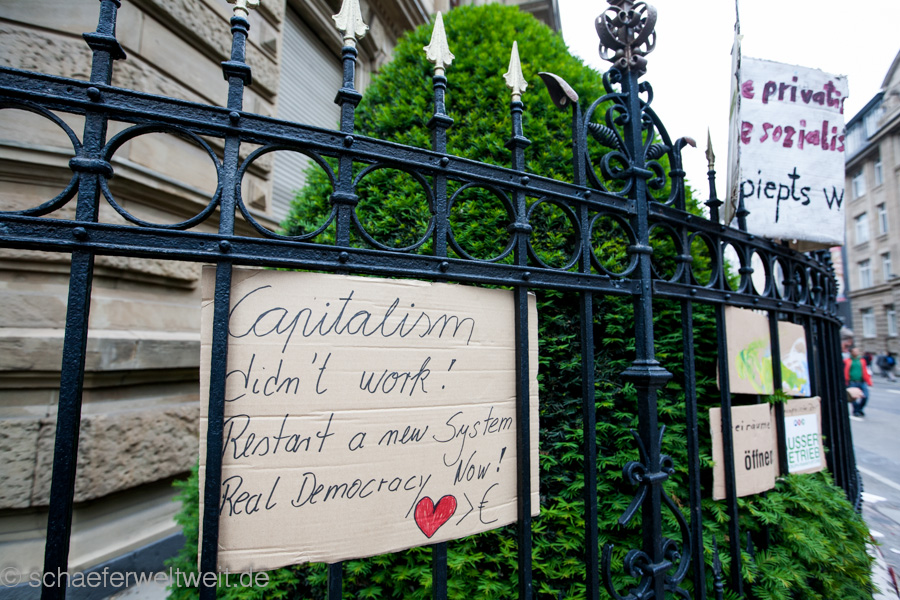 Capitalism
didn't work!
Restart a new System
Real Democracy Now!
/ ♥ > €
e privati
e sozialis
piepts w
eiräume
öffner
AUSSER
BETRIEB
© schaeferweltweit.de